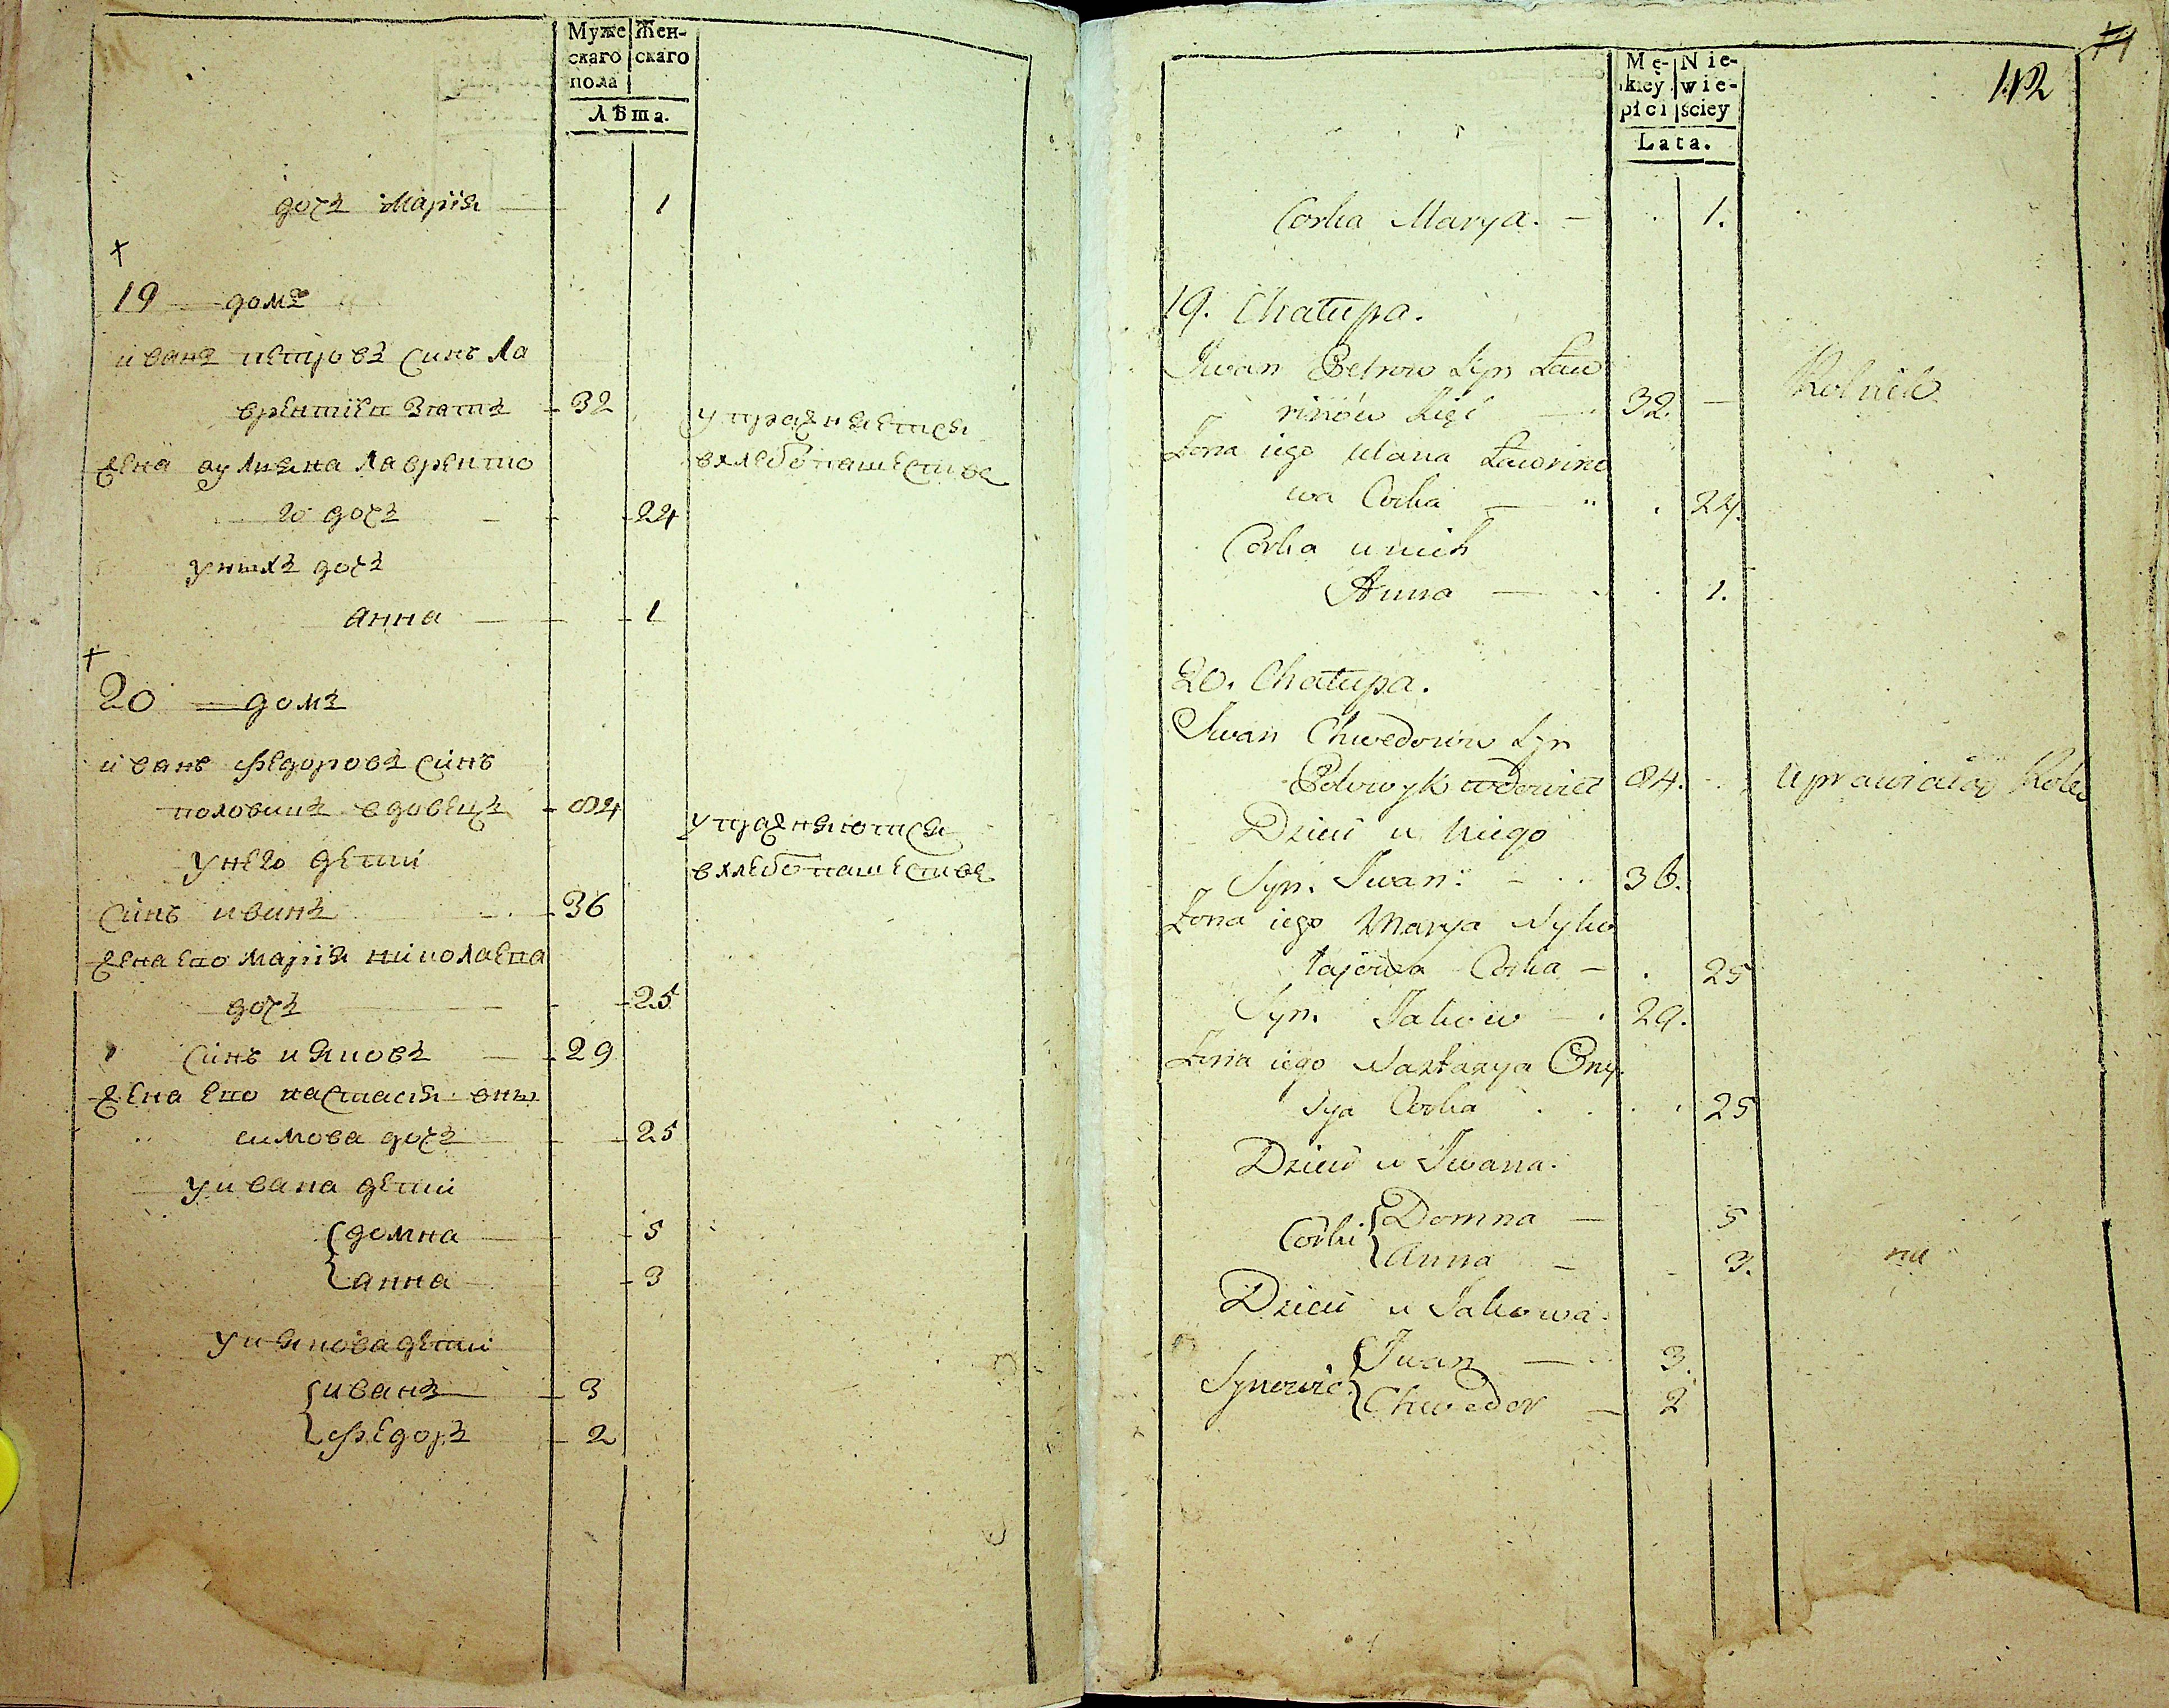 Муже Жен-
скаго скаго
пола
Лѣта.
дочъ Марія 1
19 домъ
иванъ петровъ синъ Ла
врентіеи Зять 32
упражняется
вхлебопашестве
жена аулияна Лаврентю
го дочъ 24
унихъ дочъ
анна 1
20 домъ
иванъ Федоровъ синъ
половикъ вдовецъ 84
упражняются
вхлебопашестве
унего дети
синъ иванъ 36
жена его Марія николаева
дочъ 25
синъ ияковъ 29
жена его настасія
симова дочъ 25
уивана дети
домна 5
анна 3
уиякова дети
иванъ 3
Федоръ 2
112
Mę- Nie-
kiey wie-
płci ściey
Lata.
Corka Marya. 1.
19. Chałupa.
Iwan Petrow Syn Ław
rinów Zięć 32. Rolnik
Żona iego Ulana Ławrino
wa Corka 24.
Corka u nich
Anna 1.
20. Chałupa.
Iwan Chwedorow Syn
Połowyk wdowiec 84. Uprawiaiąc Rolę
Dzieci u Niego
Syn. Iwan. 36.
Żona iego Marya Nyko
łajowa Corka 25
Syn. Jakow 29.
Żona iego Nastasya Ony
Corka 25
Dzieci u Iwana.
Corki Domna 5
Anna 3.
Dzieci u Jakowa.
Synowie Iwan 3.
Chwedor 2